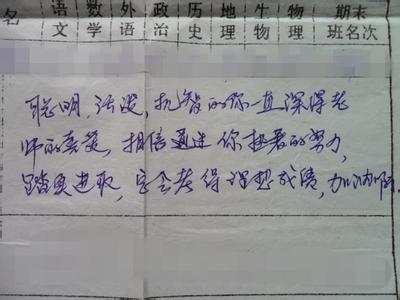 名 语文 数学 外语 政治 历史 地理 生物 物理 期末班名次
聪明,活泼,机智的你一直深得老
师的喜爱,相信通过你执着的努力,
踏实进取,定会考得理想成绩,加油啊.